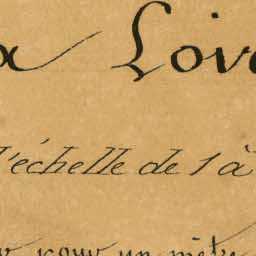 a Loi
l'échelle de 1 à
pour un mètre